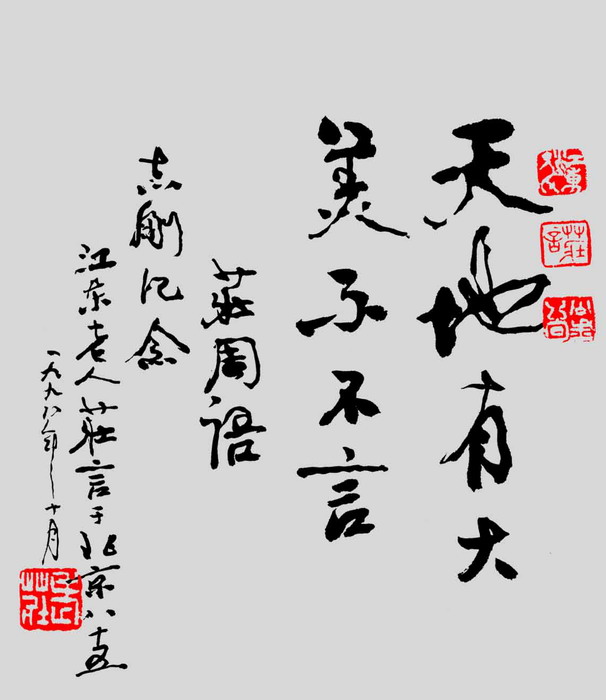 莊言
天地有大
美而不言
莊周語
志剛纪念
江东老人莊言于北京八十五
一九九八年十月